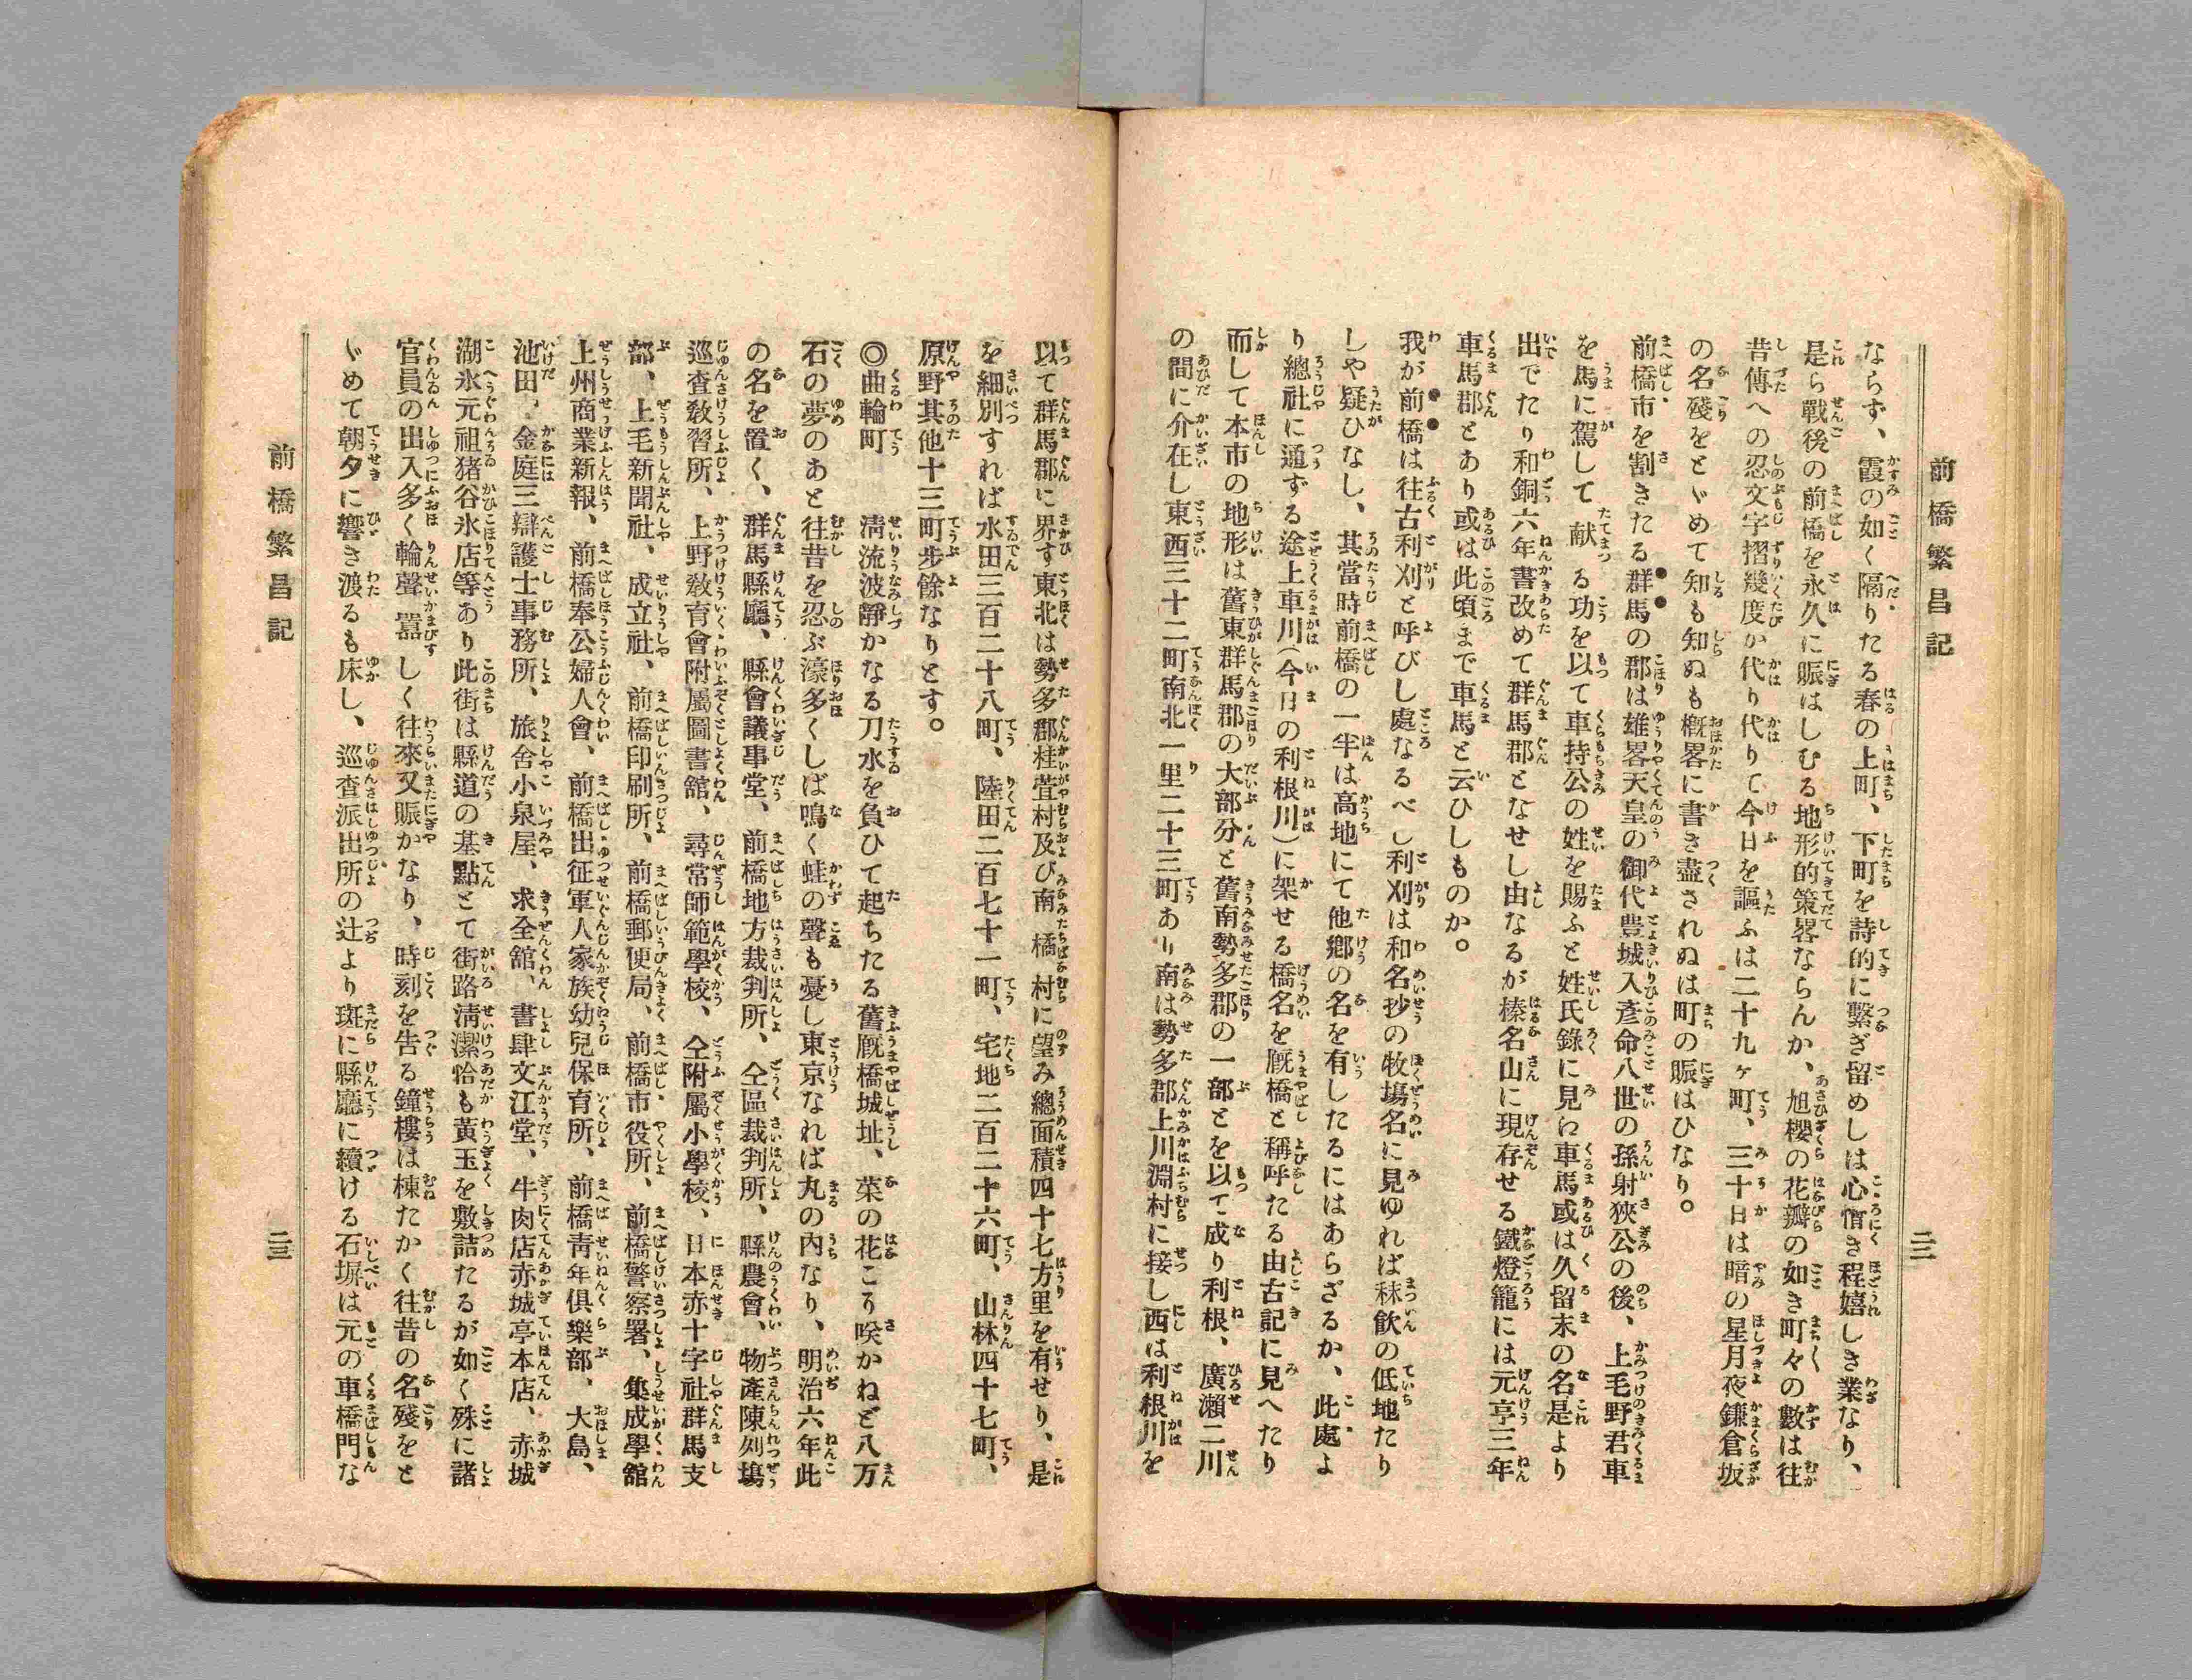 前橋繁昌記
二二
ならず、霞の如く隔りたる春の上町、下町を詩的に繫ぎ留めしは心悄き程嬉しき業なり、
是ら戰後の前橋を永久に賑はしむる地形的策畧ならんか、旭櫻の花瓣の如き町々の數は往
昔傳への忍文字摺幾度か代り代りて今日を謳ふは二十九ヶ町、三十日は暗の星月夜鎌倉坂
の名殘をとゞめて知も知ぬも槪畧に書き盡されぬは町の賑はひなり。
前橋市を割きたる群馬の郡は雄畧天皇の御代豊城入彥命八世の孫射狹公の後、上毛野君車
を馬に駕して献る功を以て車持公の姓を賜ふと姓氏錄に見ゆ車馬或は久留末の名是より
出でたり和銅六年書改めて群馬郡となせし由なるが榛名山に現存せる鐵燈籠には元亨三年
車馬郡とあり或は此頃まで車馬と云ひしものか。
我が前橋は往古利刈と呼びし處なるべし利刈は和名抄の牧塲名に見ゆれば秣飮の低地たり
しや疑ひなし、其當時前橋の一半は高地にて他鄕の名を有したるにはあらざるか、此處よ
り總社に通ずる途上車川(今日の利根川)に架せる橋名を厩橋と稱呼たる由古記に見へたり
而して本市の地形は舊東群馬郡の大部分と舊南勢多郡の一部とを以て成り利根、廣瀨二川
の間に介在し東西三十二町南北一里二十三町あり南は勢多郡上川淵村に接し西は利根川を
以て群馬郡に界す東北は勢多郡桂萱村及び南橘村に望み總面積四十七方里を有せり、是
を細別すれば水田三百二十八町、陸田二百七十一町、宅地二百二十六町、山林四十七町、
原野其他十三町步餘なりとす。
◎曲輪町　淸流波靜かなる刀水を負ひて起ちたる舊厩橋城址、菜の花こそ咲かねど八万
石の夢のあと往昔を忍ぶ濠多くしば鳴く蛙の聲も憂し東京なれば丸の內なり、明治六年此
の名を置く、群馬縣廳、縣會議事堂、前橋地方裁判所、仝區裁判所、縣農會、物產陳列塲
巡査敎習所、上野敎育會附屬圖書館、尋常師範學校、仝附屬小學校、日本赤十字社群馬支
部、上毛新聞社、成立社、前橋印刷所、前橋郵便局、前橋市役所、前橋警察署、集成學舘
上州商業新報、前橋奉公婦人會、前橋出征軍人家族幼兒保育所、前橋靑年俱樂部、大島、
池田、金庭三辯護士事務所、旅舍小泉屋、求全舘、書肆文江堂、牛肉店赤城亭本店、赤城
湖氷元祖猪谷氷店等あり此街は縣道の基點とて街路淸潔恰も黃玉を敷詰たるが如く殊に諸
官員の出入多く輪聲囂しく往來又賑かなり、時刻を告る鐘樓は棟たかく往昔の名殘をと
ゞめて朝夕に響き渡るも床し、巡査派出所の辻より斑に縣廳に續ける石塀は元の車橋門な
前橋繁昌記
二三